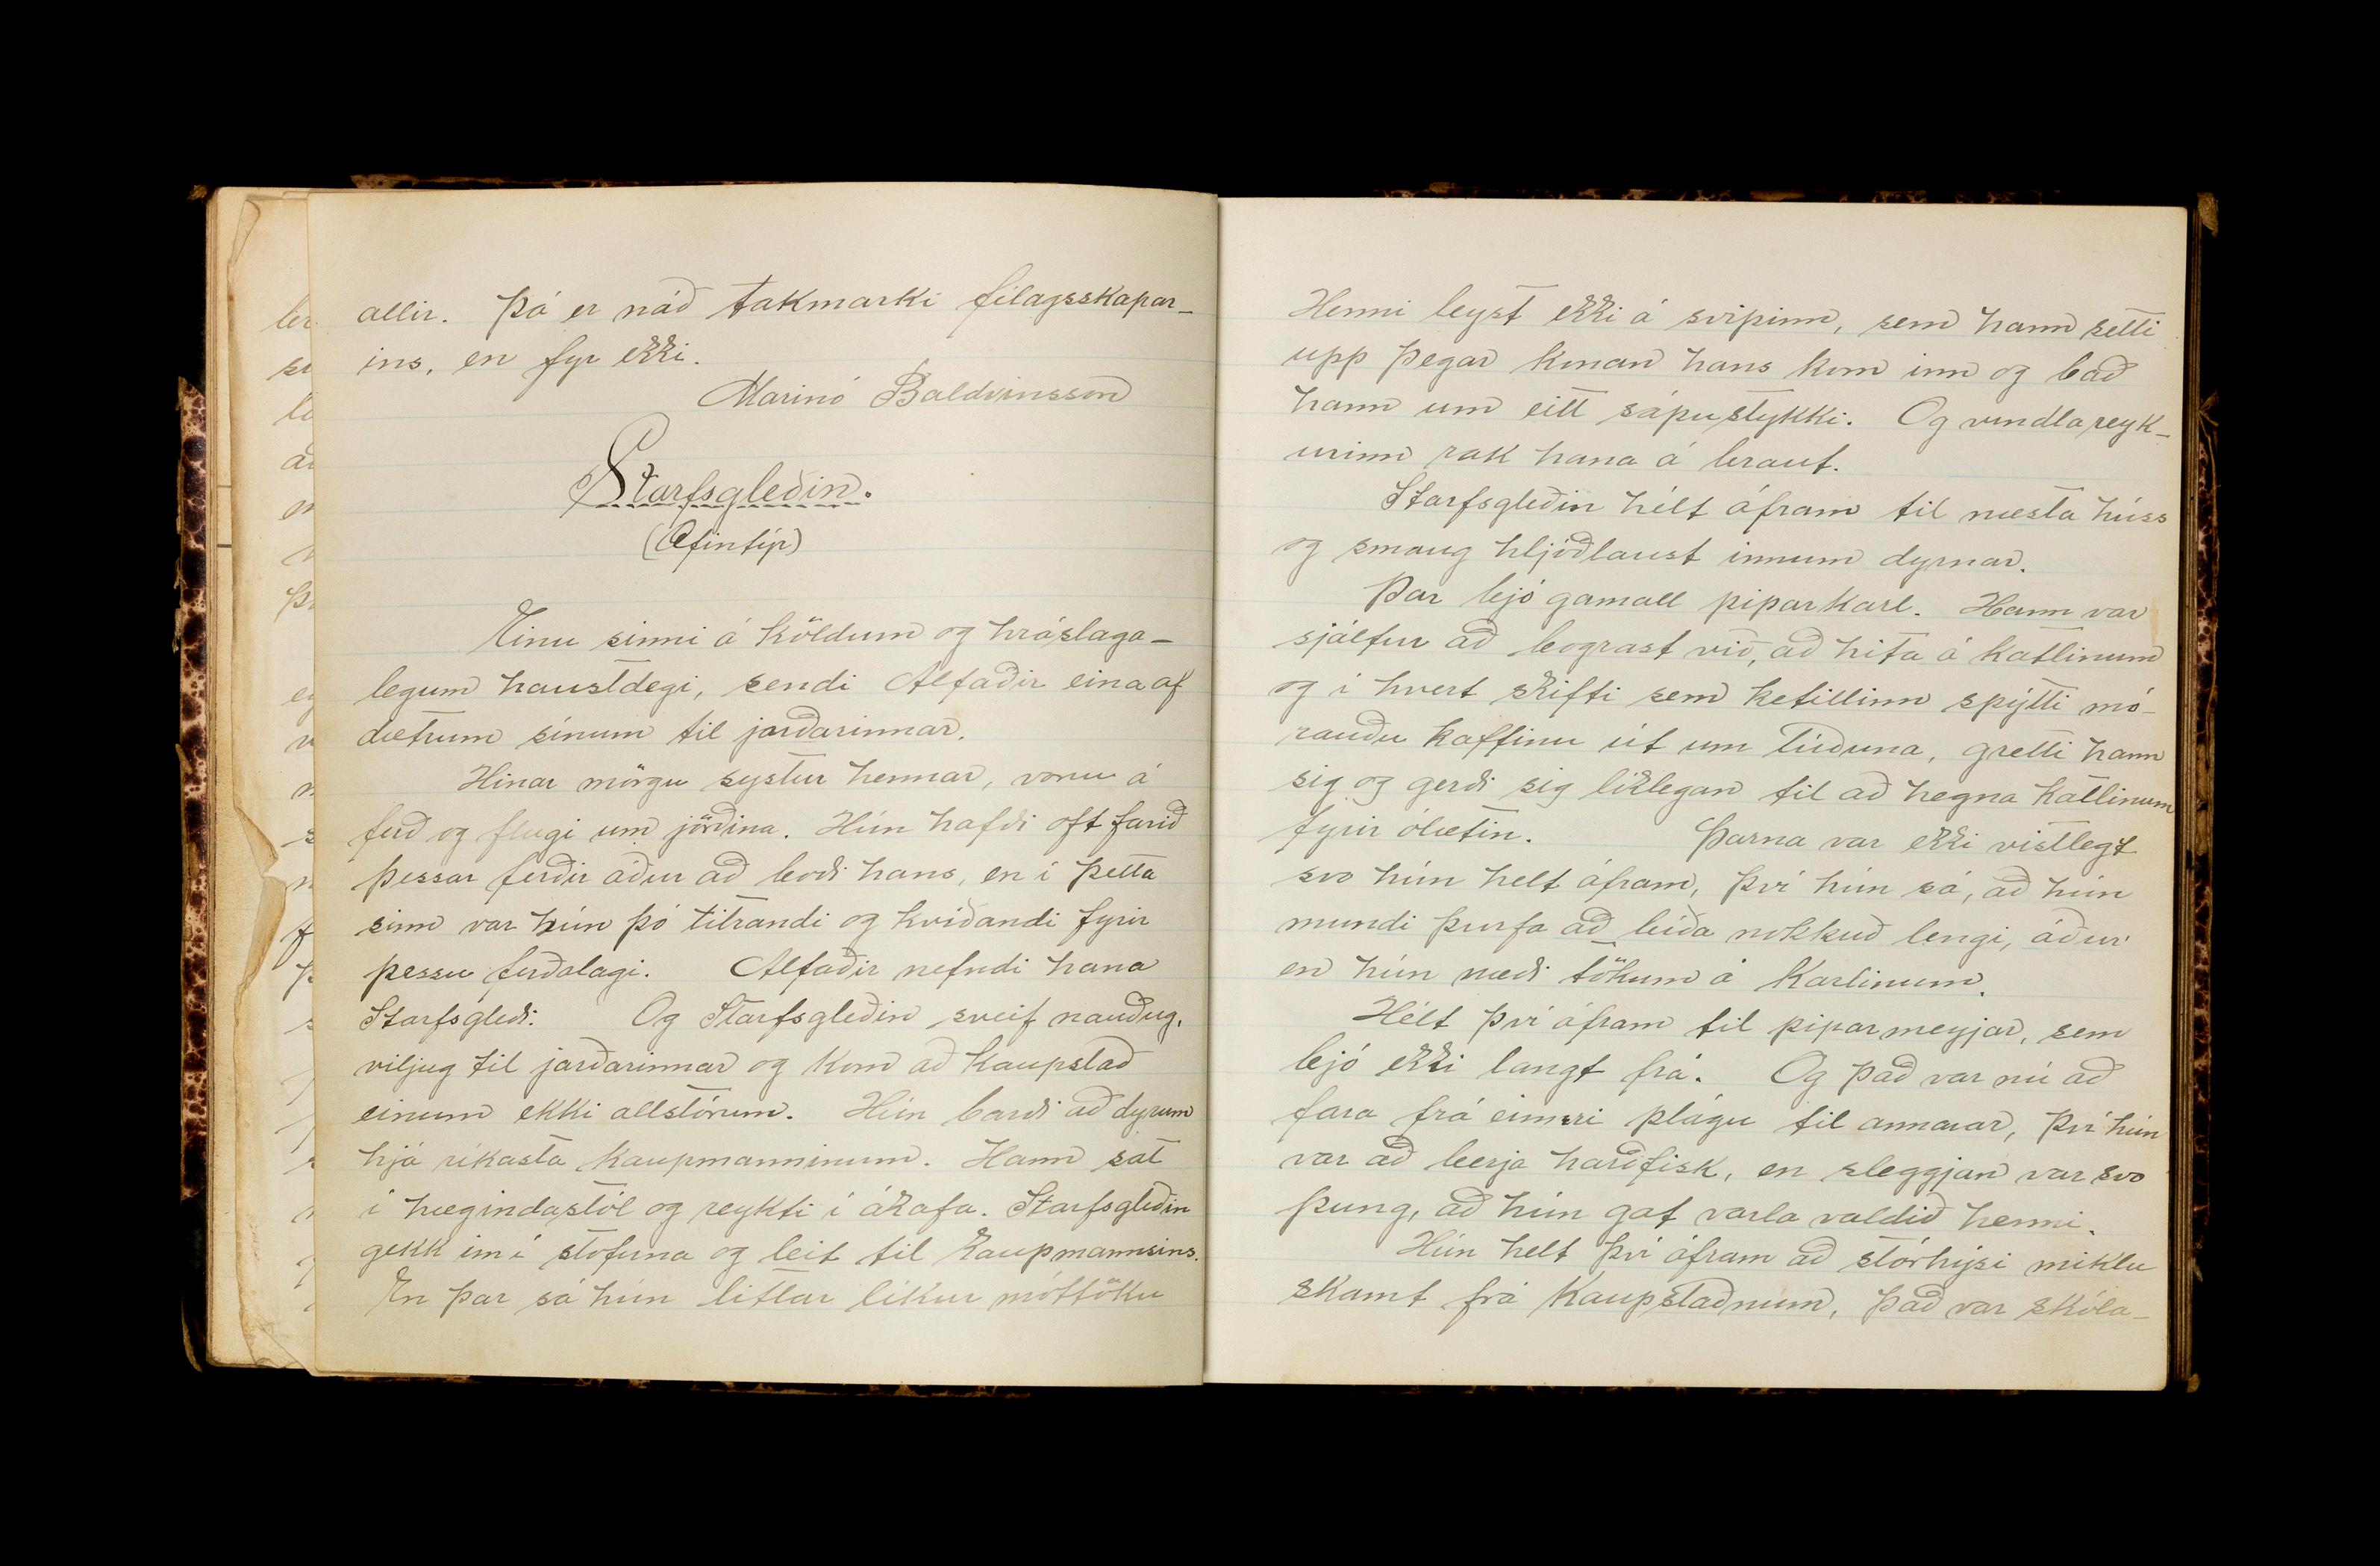 allir. Þá er náð takmarki félagsskapar-
ins, en fyr ekki.
Marinó Baldvinsson
Starfsgleðin.
(Æfintýr)
Einu sinni á köldum og hráslaga-
legum haustdegi, sendi Alfaðir eina af
dætrum sínum til jarðarinnar.
Hinar mörgu systur hennar, voru á
ferð og flugi um jörðina. Hún hafði oft farið
þessar ferðir áður að boði hans, en í þetta
sinn var hún þó titrandi og kvíðandi fyrir
þessu ferðalagi. Alfaðir nefndi hana
Starfsgleði. Og Starfsgleðin sveif nauðug,
viljug til jarðarinnar og kom að kaupstað
einum ekki allstórum. Hún barði að dyrum
hjá ríkasta kaupmanninum. Hann sat
í hægindastól og reykti í ákafa. Starfsgleðin
gekk inní stofuna og leit til kaupmannsins.
En þar sá hún litlar líkur móttöku
Henni leyst ekki á svipinn, sem hann setti
upp þegar konan hans kom inn og bað
hann um eitt sápustykki. Og vindlareyk-
urinn rak hana á braut.
Starfsgleðin hélt áfram til næsta húss
og smaug hljóðlaust innum dyrnar.
Þar bjó gamall piparkarl. Hann var
sjálfur að bograst við, að hita á katlinum
og í hvert skifti sem ketillinn spýtti mó-
rauðu kaffinu út um túðuna, gretti hann
sig og gerði sig líklegan til að hegna katlinum
fyrir ólætin. Þarna var ekki vistlegt
svo hún helt áfram, því hún sá, að hún
mundi þurfa að bíða nokkuð lengi, áður
en hún næði tökum á karlinum.
Hélt því áfram til piparmeyjar, sem
bjó ekki langt frá. Og það var nú að
fara frá einni plágu til annarar, því hún
var að berja harðfisk, en sleggjan var svo
þung, að hún gat varla valdið henni.
Hún helt því áfram að stórhýsi miklu
skamt frá kaupstaðnum, það var skóla-